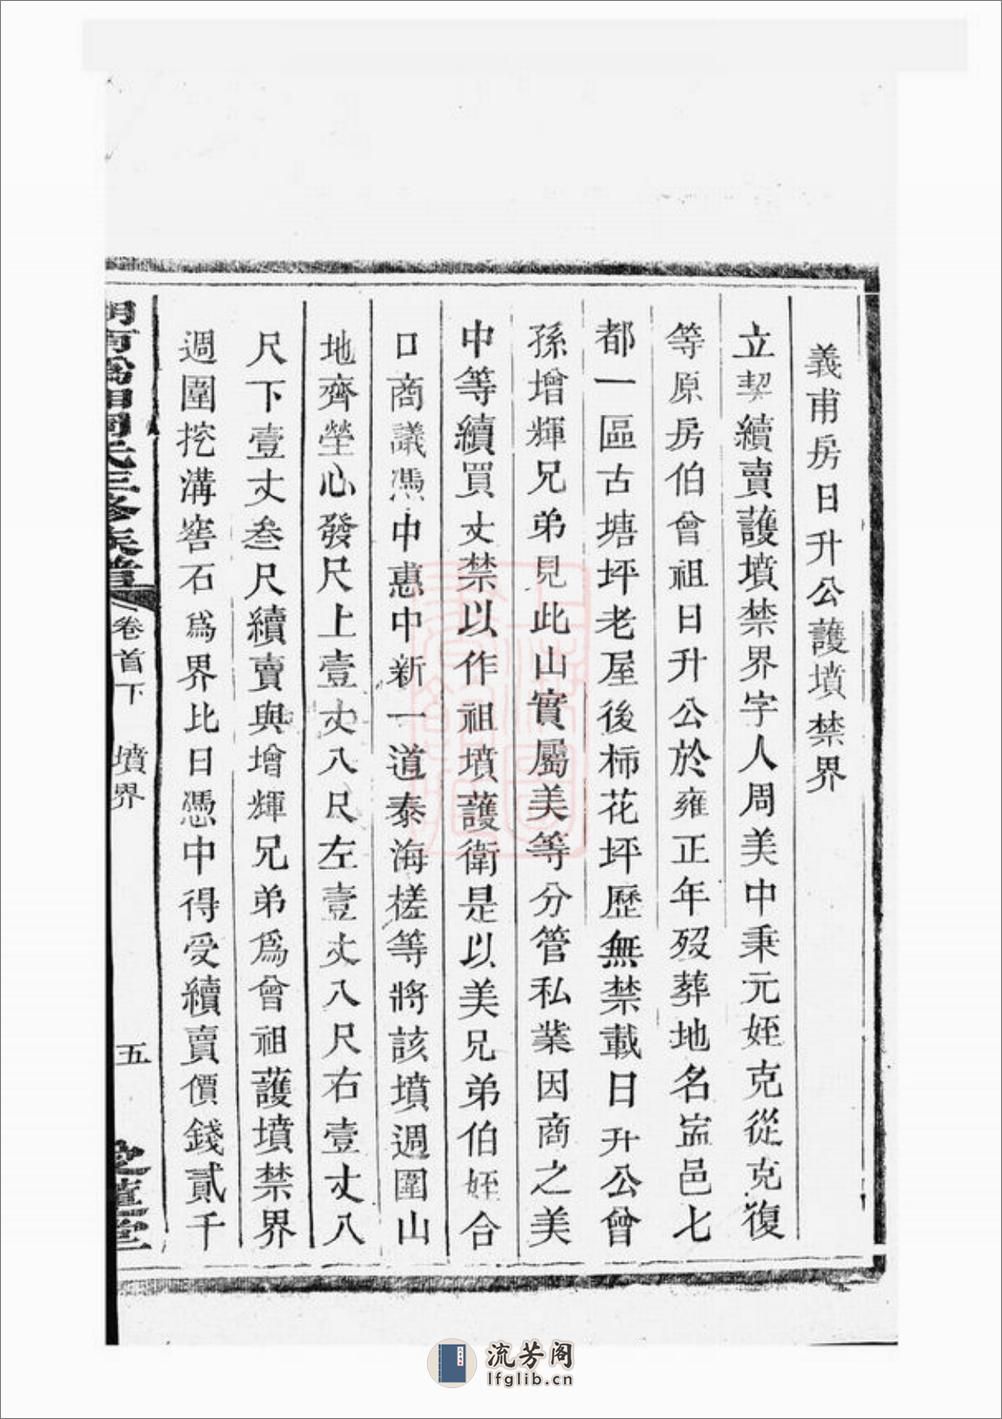 義甫房日升公護墳禁界
立契續賣護墳禁界字人周美中秉元姪克從克復
等原房伯曾祖日升公於雍正年歿葬地名寍邑七
都一區古塘坪老屋後柿花坪歷無禁載日升公曾
孫增輝兄弟見此山實屬美等分管私業因商之美
中等續買丈禁以作祖墳護衛是以美兄弟伯姪合
口商議憑中惠中新一道泰海槎等將該墳週圍山
地齊塋心發尺上壹丈八尺左壹丈八尺右壹丈八
尺下壹丈叁尺續賣與增輝兄弟爲曾祖護墳禁界
週圍挖溝窖石爲界比日憑中得受續賣價錢貳千
周氏三修族譜 卷首下 墳界 五
流芳阁
lfglib.cn